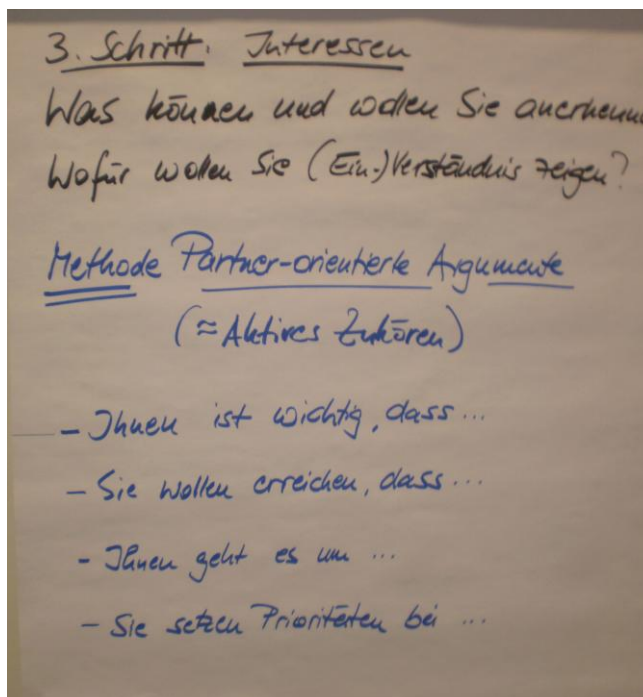 3. Schritt. Interessen
Was können und wollen Sie anerkenn
Wofür wollen Sie (Ein-)Verständnis zeigen?
Methode Partner-orientierte Argumente
(≈Aktives Zuhören)
- Ihnen ist wichtig, dass...
- Sie wollen erreichen, dass...
- Ihnen geht es um ...
- Sie setzen Prioritäten bei ...